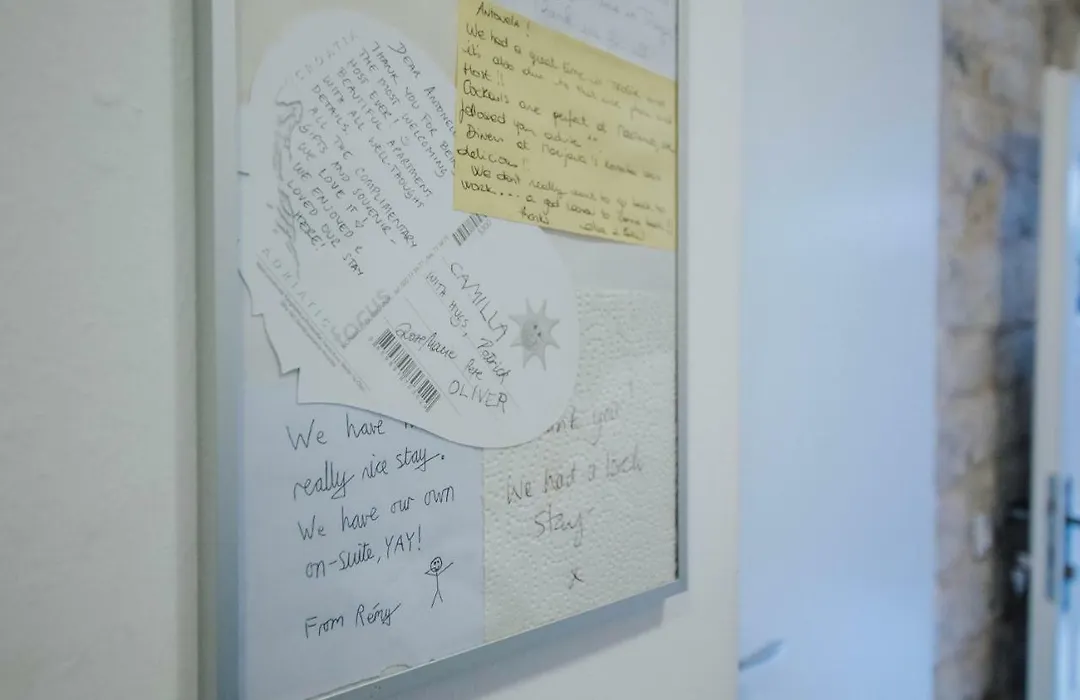 CROATIA
DEAR ANTONELA
THANK YOU FOR BEING
THE MOST WELCOMING
HOST EVER
BEAUTIFUL APARTMENT
WITH ALL WELL-THOUGHT
DETAILS.
ALL THE COMPLIMENTARY
GIFTS AND SOUVENIR -
WE LOVE IT
WE ENJOYED &
LOVED OUR STAY
HERE!
FOCUS
CAMILLA
WITH HUGS, Patrick
OLIVER
Antonela!
We had a great time
it's also due to
Host!!
Cocktails are perfect at
followed your advice
Diner at
delicious!
We don't really want to go back to
work... a good reason to come back!
thanks
We have
really nice stay.
We have our own
on-suite, YAY!
From Rémy
you!
We had a
stay
x